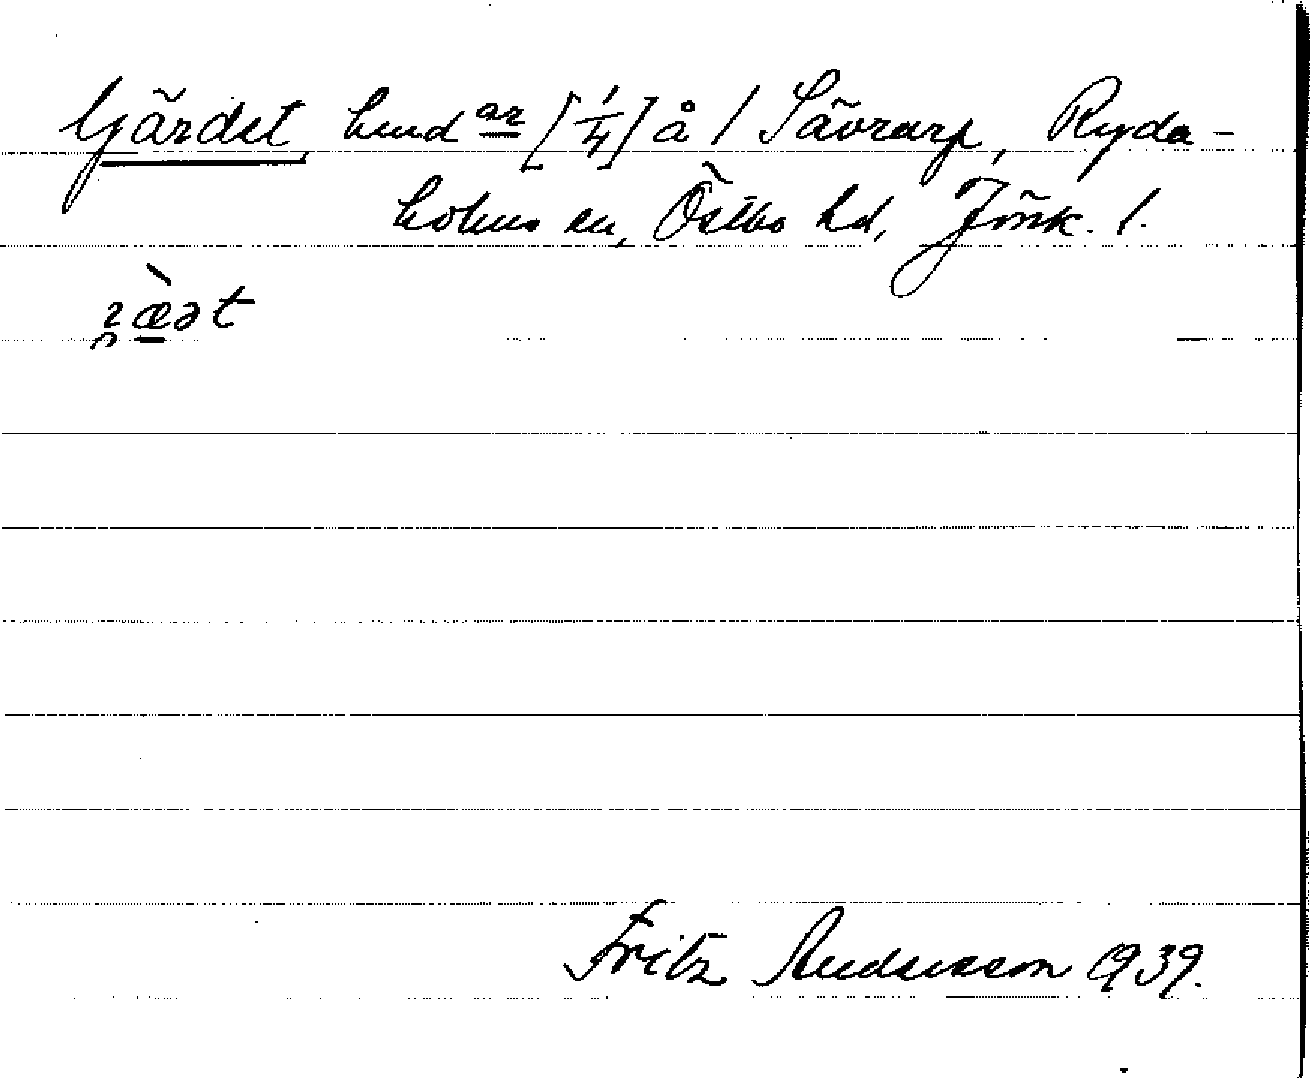 Gärdet, hmd ar [1/4] å / Sävrarp, Ryda-
holms sn, Östbo hd, Jönk. l.
Fritz Andersson 1939.